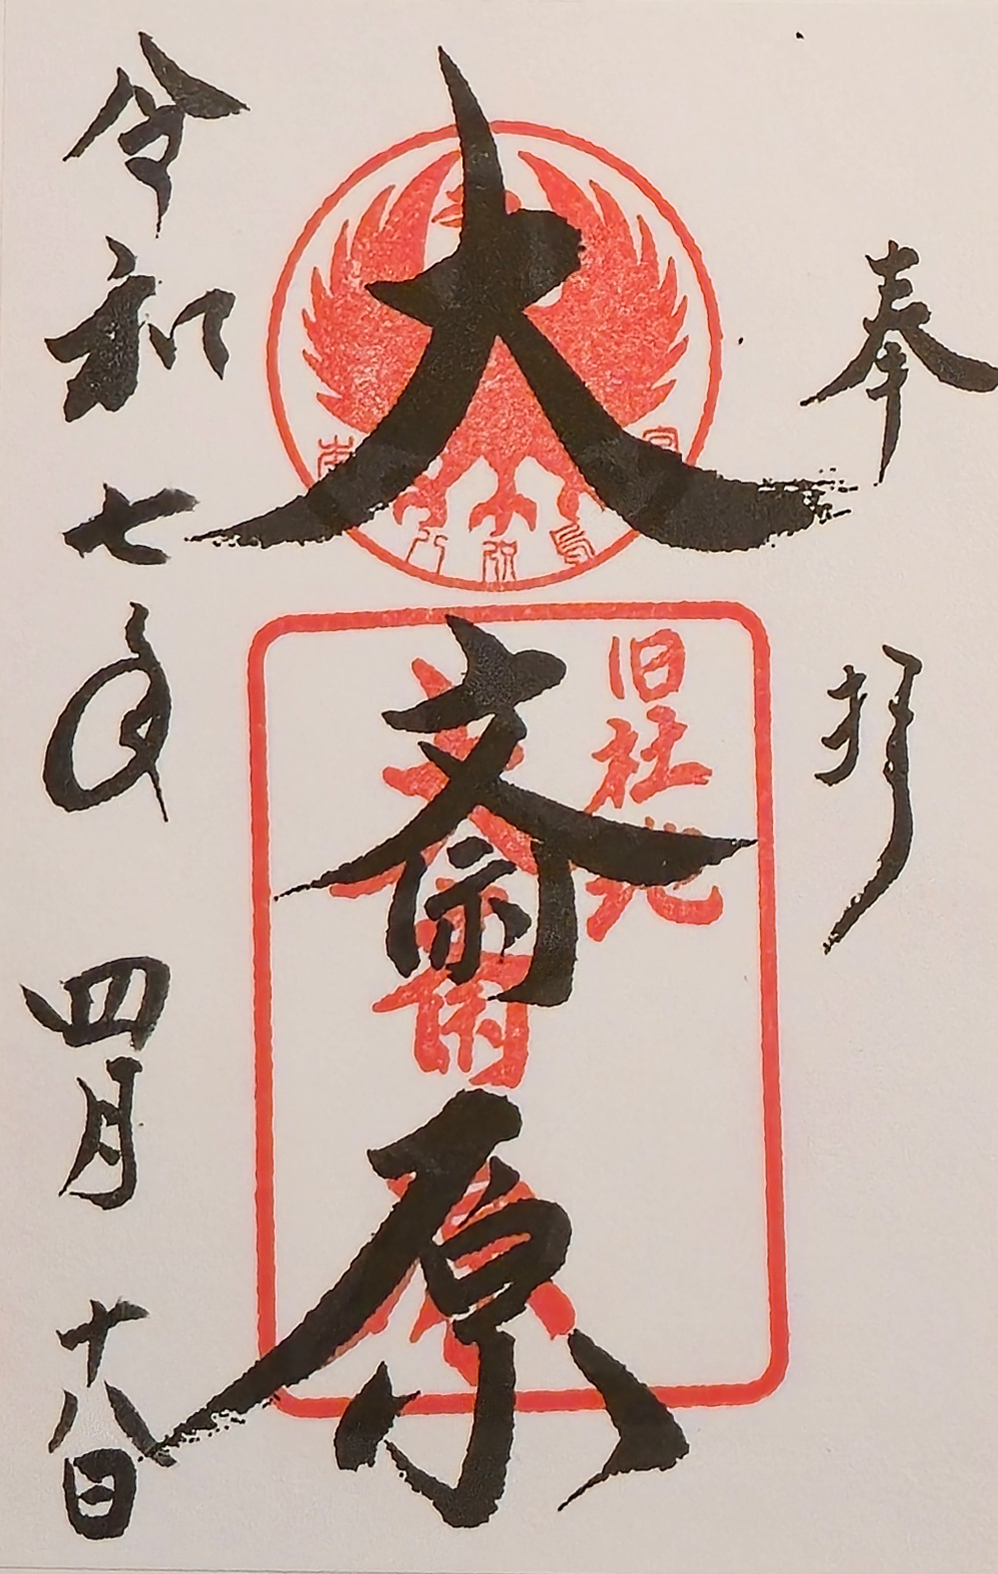 奉拝
大斎原
旧社地
大斎原
令和七年四月十八日